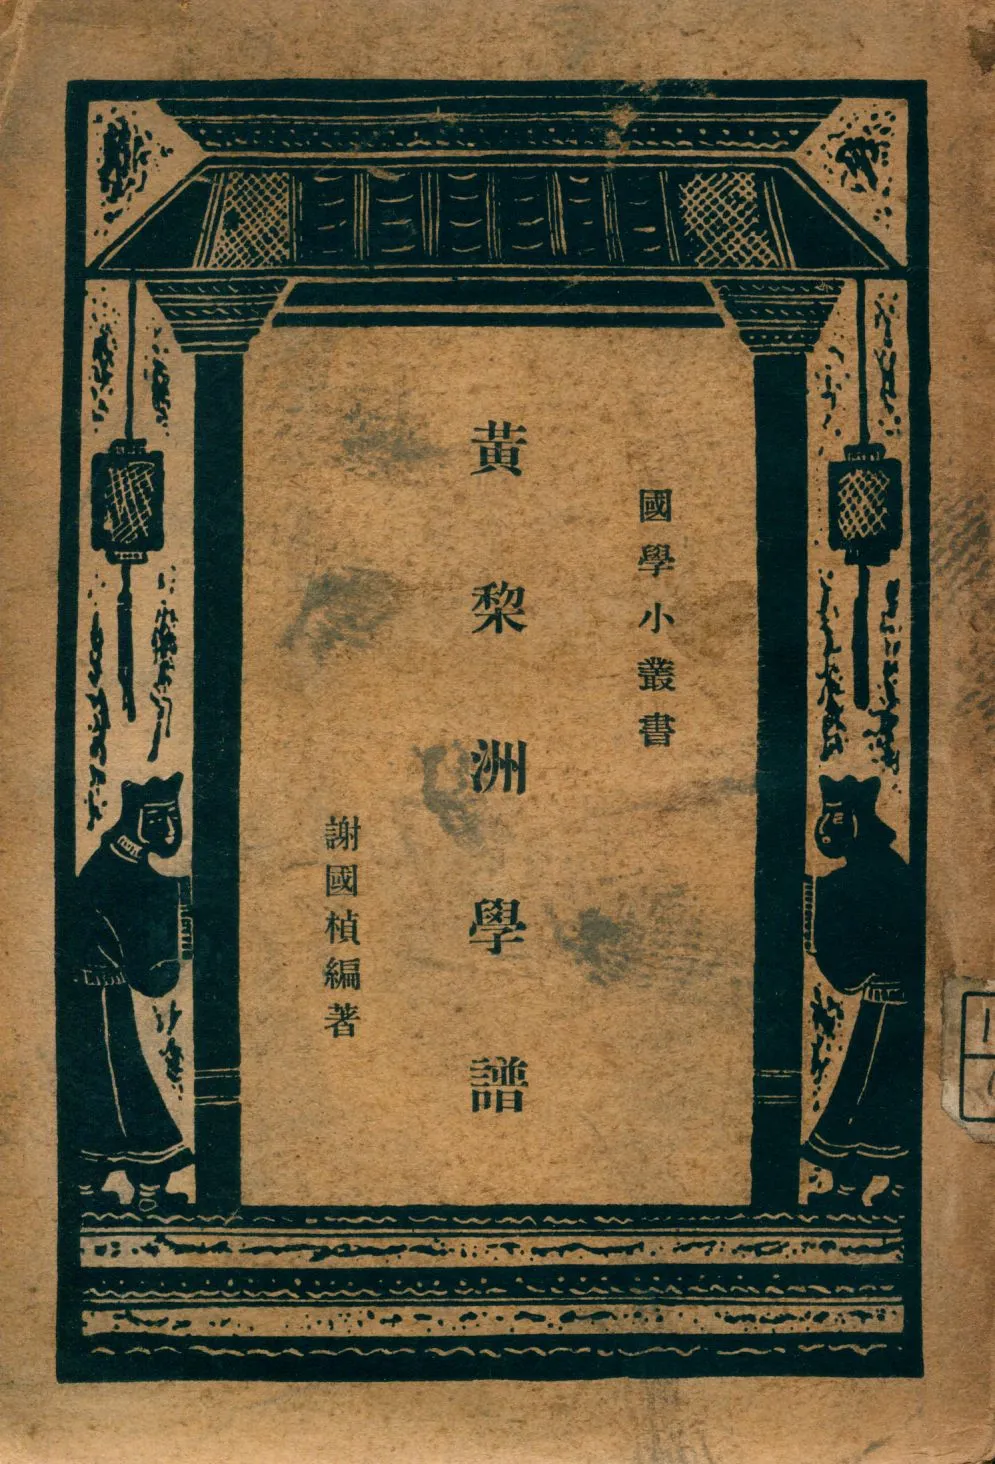 國學小叢書
黃棃洲學譜
謝國楨編著